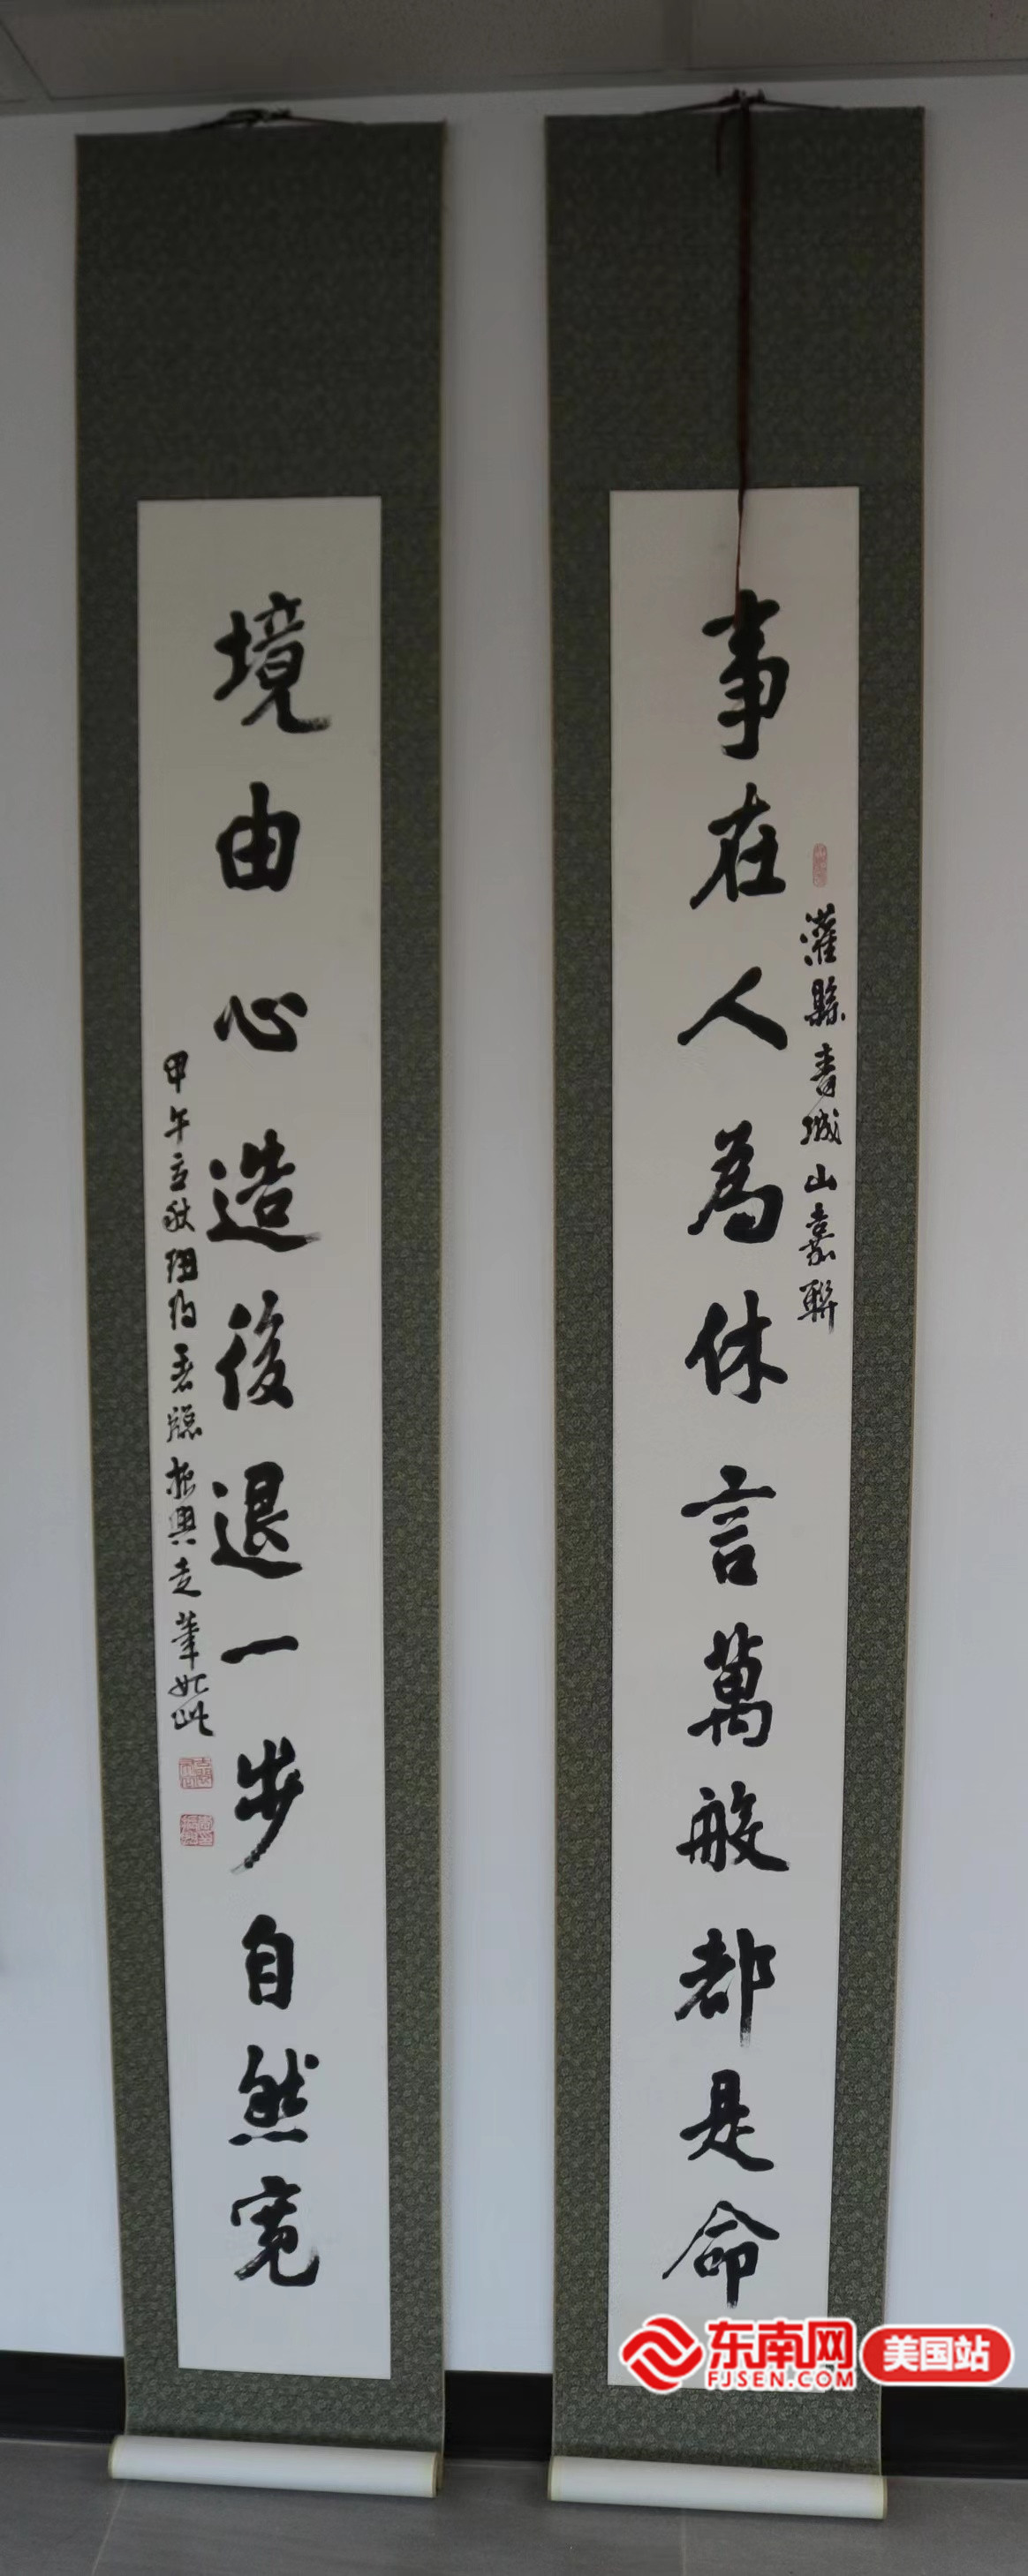 事在人為休言萬般都是命
灌縣青城山嘉聯
境由心造後退一步自然寬
甲午立秋
振興走筆如此
东南网
FJSEN.COM
美国站